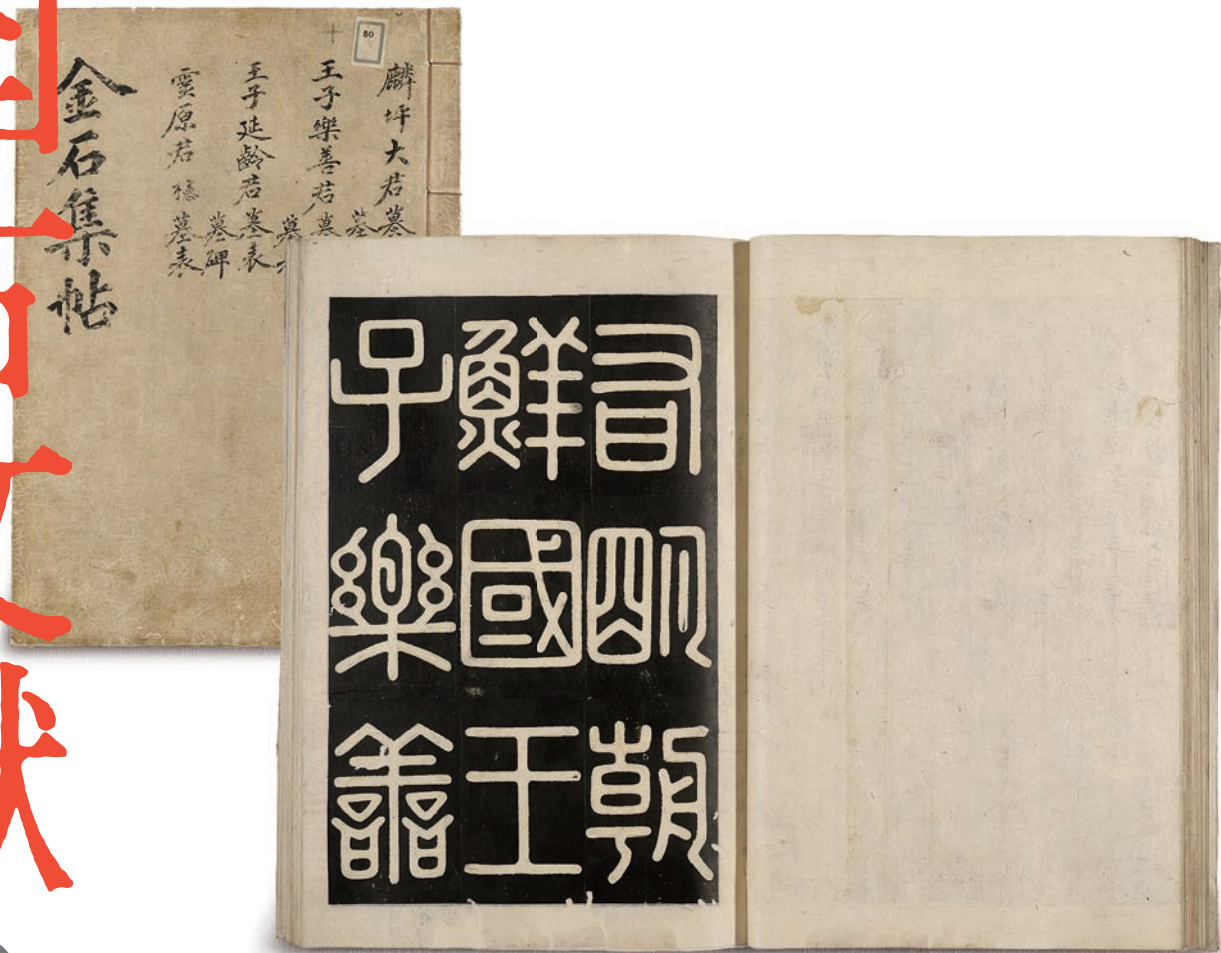 50
麟坪大君墓
墓
王子樂善君墓
墓
王子延齡君墓表
墓碑
靈原君櫶墓表
金石集帖
有明朝
鮮國王
子樂善